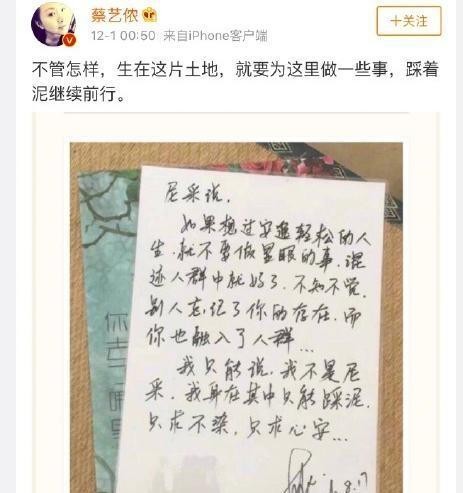 蔡艺侬
12-1 00:50 来自iPhone客户端
+关注
不管怎样，生在这片土地，就要为这里做一些事，踩着
泥继续前行。
尼采说，
如果想过安逸轻松的人
生，就不要做显眼的事，混
迹人群中就好了，不知不觉，
别人忘记了你的存在，而
你也融入了人群…
我只能说，我不是尼
采，我身在其中只能踩泥，
只求不染，只求心安…
8.17
你幸